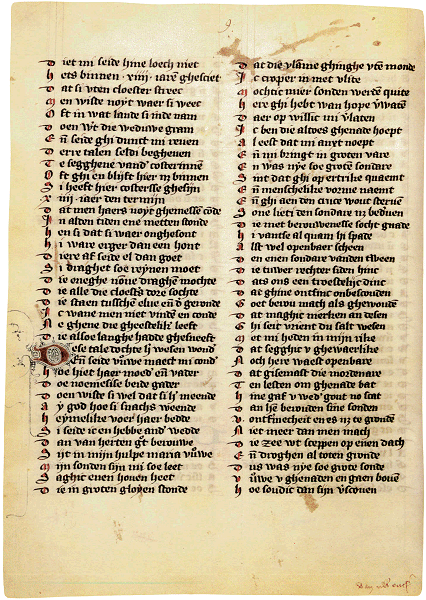 Diet mi seide hine loech niet
hets binnen · xiiij · iarē ghesciet
Dat si vten cloester streec
men wiste noyt waer si weec
Oft in wat lande si nam
Doen wt die weduwe gram
Eñ seide ghi dunct mi reuen
Derre talen seldi begheuen
Te segghene vand' costerinnē
Oft ghi en blijft hier niet binnen
Si heeft hier costersse ghesijn
xiiij · iaer den termijn
Dat men haers noyt ghemesse
In alten tiden ene metten stonde
hen si dat si waer onghesont
hi ware erger dan een hont
Diere af seide el dan goet
Si draghet soe reynen moet
Die oneghe nōne draghē mochte
Die alle die cloestˢ dore sochte
Die staen tusschē elue eñ d' geronde
Ic wane men niet vindē en conde
Neghene die gheestelikˢ leeft
Die alsoe langhe hadde ghesneeft
Dese tale dochte hˢ wesen wondˢ
Eñ seide vrouwe maect mi cond'
hoe hiet haer moedˢ eñ vader
Doe noemesise beide gader
Doen wiste si wel dat si hˢ meende
Ay god hoe si snachs weende
heymelike voer haer bedde
Si seide ic en hebbe and' wedde
Dan van herten gˢt berouwe
Sijt in mijn hulpe maria vrouwe
Mijn sonden sijn mi soe leet
Saghic enen houen heet
Die in groten gloyen stonde
Dat die vlāme ghinghe vtē monde
Ic croper in met vlite
Mochtic mier sonden werdē quite
here ghi hebt wan hope vˢwatē
Daer op willic mi vˢlaten
Ic ben die altoes ghenade hoept
Al eest dat mi anxt noept
Eñ mi bringt in groten vare
En was nye soe grotˢ sondare
Sint dat ghi op ertrike quaemt
Eñ menschelike vorme naemt
Eñ ghi aen den cruce wout steruē
Sone lieti den sondare niet bedˢuen
Die met berouwenesse socht gnade
hi vantse al quam hi spade
Alst wel openbaer scheen
Den enen sondare vanden tween
Die tuwer rechter siden hinc
Dats ons een troestelijc dinc
Dat ghine ontfinc onbescouden
Goet berou mach als ghewouden
Dat maghic merken an desen
Ghi seit vrient du salt wesen
Met mi heden in mijn rike
Dat segghic v ghewaerlike
Noch here waest openbare
Dat gisemast die mordenare
Ten lesten om ghenade bat
hine gaf v wed' gout no scat
Dan hˢ berouden sine sonden
V ontfˢmecheit en es niet te grondē
Niet meer dan men mach
Die zee wt sceppen op enen dach
Eñ droghen al toten gronde
Dus was nye soe grote sonde
Vrouwe v ghenaden en gaen bouen
hoe soudic dan sijn vˢscouen